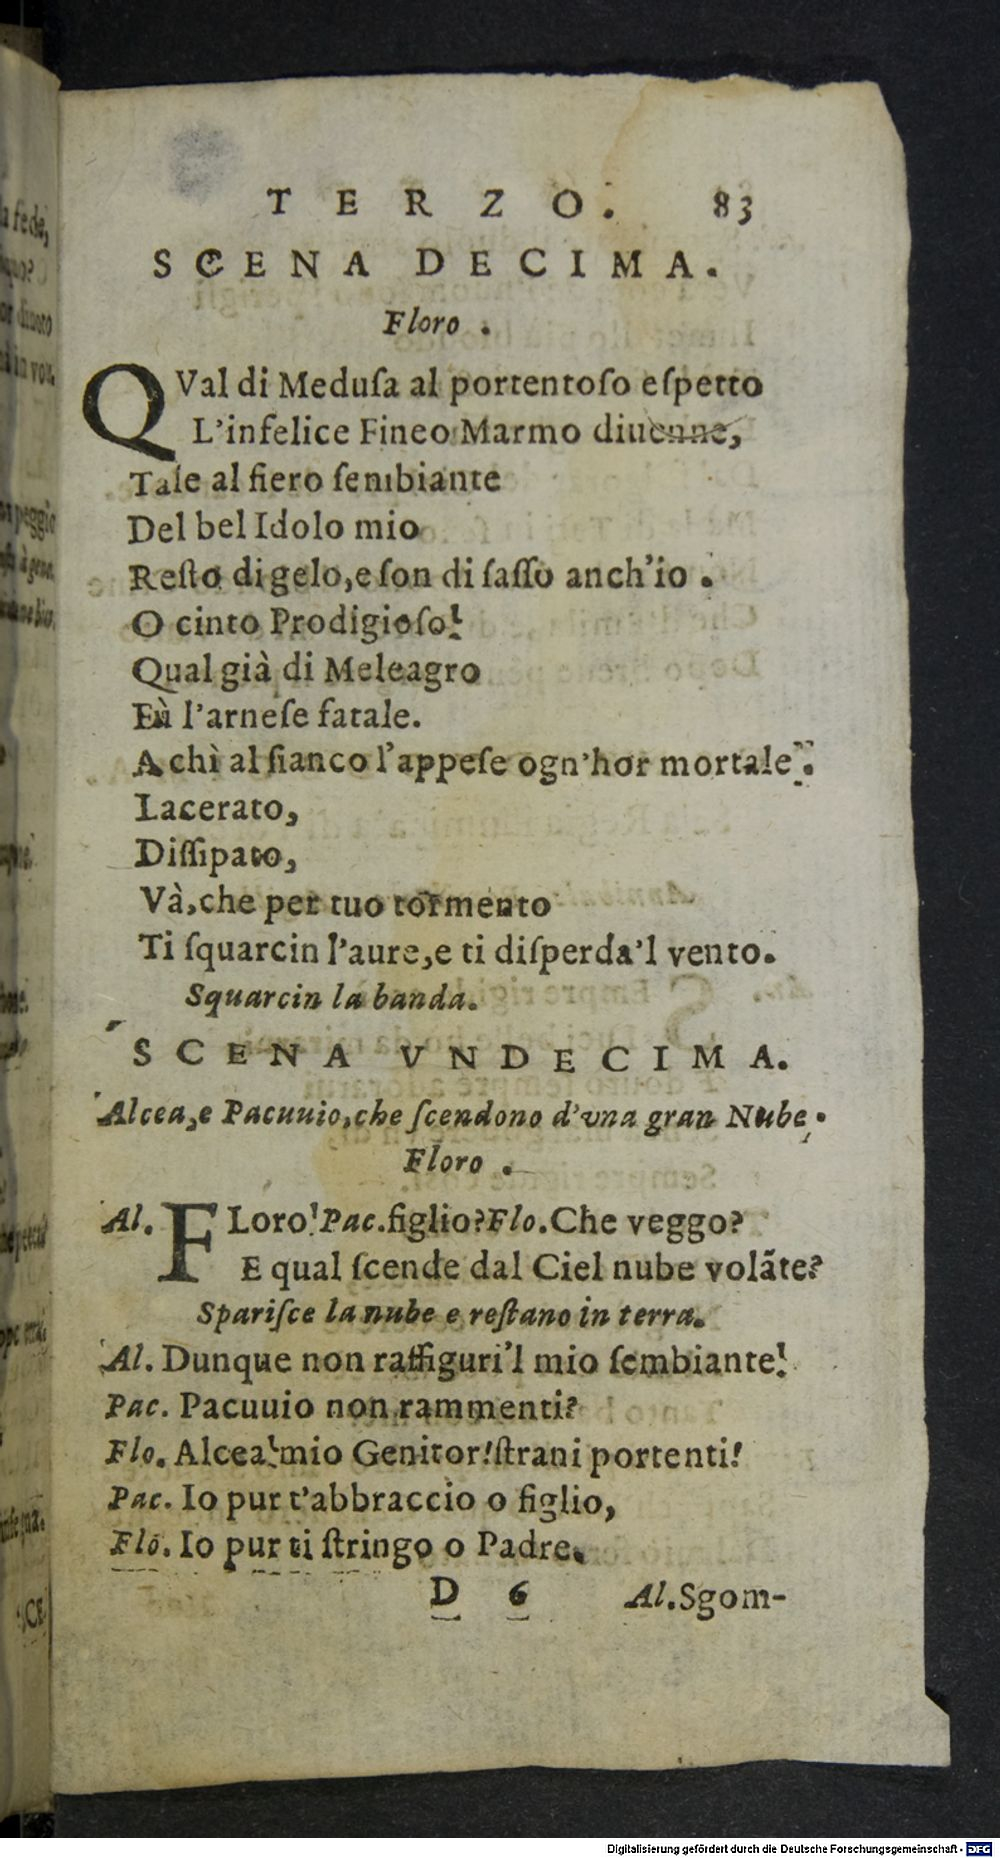 TERZO. 83
SCENA DECIMA.
Floro.
QVal di Meduſa al portentoſo eſpetto
L'infelice Fineo Marmo diuenne,
Tale al fiero ſembiante
Del bel Idolo mio
Reſto di gelo, e ſon di ſaſſo anch'io.
O cinto Prodigioſo!
Qual già di Meleagro
Fù l'arneſe fatale.
A chì al fianco l'appeſe ogn'hor mortale.
Lacerato,
Diſſipato,
Và, che per tuo tormento
Ti ſquarcin l'aure, e ti diſperda'l vento.
Squarcin la banda.
SCENA VNDECIMA.
Alcea, e Pacuuio, che ſcendono d'vna gran Nube.
Floro.
Al. FLoro! Pac. figlio? Flo. Che veggo?
E qual ſcende dal Ciel nube volãte?
Spariſce la nube e reſtano in terra.
Al. Dunque non raffiguri'l mio ſembiante!
Pac. Pacuuio non rammenti?
Flo. Alcea! mio Genitor! ſtrani portenti!
Pac. Io pur t'abbraccio o figlio,
Flo. Io pur ti ſtringo o Padre.
D 6 Al. Sgom-
Digitalisierung gefördert durch die Deutsche Forschungsgemeinschaft - DFG